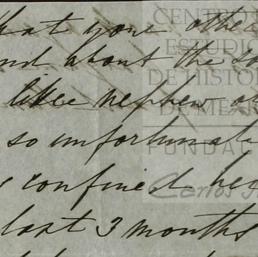 that your othe
nd about the so
like nephew a
so unfortunat
confined he
last 3 months
CENTRO
ESTUDIO
DE HISTOR
DE MÉX
FUNDA
Carlos S